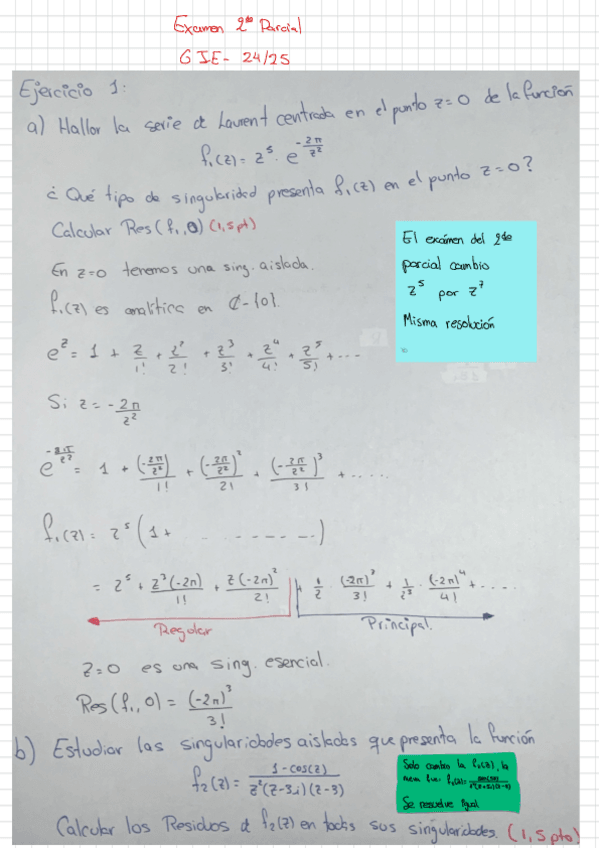 Examen 2do Parcial
GIE - 24/25
Ejercicio 1:
a) Hallar la serie d Laurent centrada en el punto z=0 de la función
f₁(z) = z⁵ · e^(-2π/z²)
¿Qué tipo de singularidad presenta f₁(z) en el punto z=0?
Calcular Res(f₁, 0) (1,5 pt)
El exámen del 2do
parcial cambio
z⁵ por z⁷
Misma resolución
En z=0 tenemos una sing. aislada.
f₁(z) es analítica en ₵-{0}.
e^z = 1 + z/1! + z²/2! + z³/3! + z⁴/4! + z⁵/5! + ...
Si z = -2π/z²
= 1 + (-2π/z²)/1! + (-2π/z²)²/2! + (-2π/z²)³/3! + ....
f₁(z) = z⁵ (1 + . . . . . . . .)
= z⁵ + z³(-2π)/1! + z(-2π)²/2! + 1/z · (-2π)³/3! + 1/z³ · (-2π)⁴/4! + .....
Regular
Principal.
z=0 es una sing. esencial.
Res(f₁, 0) = (-2π)³/3!
b) Estudiar las singularidades aisladas que presenta la función
f₂(z) = 1-cos(z) / z²(z-3i)(z-3)
Solo cambio la f₂(z), la
Se resuelve igual
Calcular los Residuos d f₂(z) en todas sus singularidades. (1,5 pto)